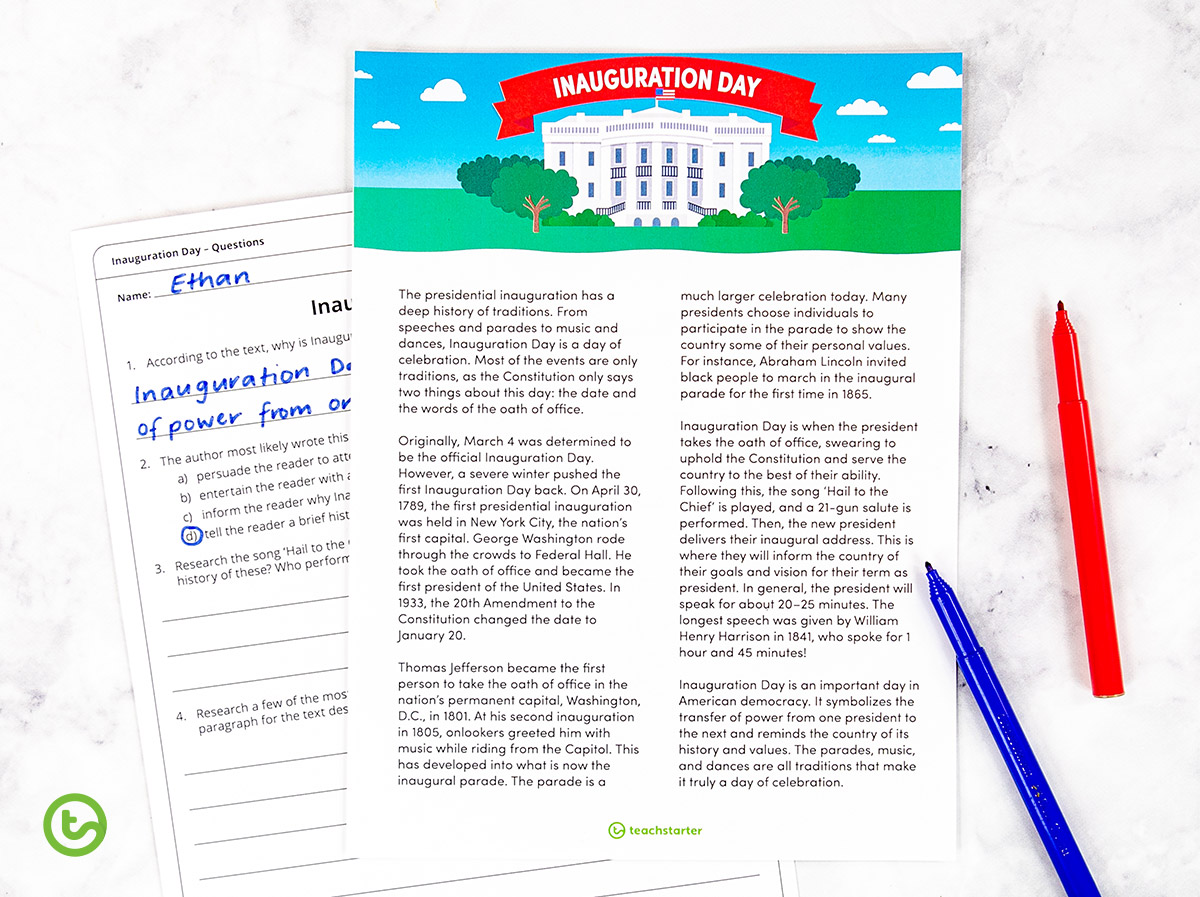 INAUGURATION DAY
The presidential inauguration has a
deep history of traditions. From
speeches and parades to music and
dances, Inauguration Day is a day of
celebration. Most of the events are only
traditions, as the Constitution only says
two things about this day: the date and
the words of the oath of office.
Originally, March 4 was determined to
be the official Inauguration Day.
However, a severe winter pushed the
first Inauguration Day back. On April 30,
1789, the first presidential inauguration
was held in New York City, the nation's
first capital. George Washington rode
through the crowds to Federal Hall. He
took the oath of office and became the
first president of the United States. In
1933, the 20th Amendment to the
Constitution changed the date to
January 20.
Thomas Jefferson became the first
person to take the oath of office in the
nation's permanent capital, Washington,
D.C., in 1801. At his second inauguration
in 1805, onlookers greeted him with
music while riding from the Capitol. This
has developed into what is now the
inaugural parade. The parade is a
much larger celebration today. Many
presidents choose individuals to
participate in the parade to show the
country some of their personal values.
For instance, Abraham Lincoln invited
black people to march in the inaugural
parade for the first time in 1865.
Inauguration Day is when the president
takes the oath of office, swearing to
uphold the Constitution and serve the
country to the best of their ability.
Following this, the song 'Hail to the
Chief' is played, and a 21-gun salute is
performed. Then, the new president
delivers their inaugural address. This is
where they will inform the country of
their goals and vision for their term as
president. In general, the president will
speak for about 20–25 minutes. The
longest speech was given by William
Henry Harrison in 1841, who spoke for 1
hour and 45 minutes!
Inauguration Day is an important day in
American democracy. It symbolizes the
transfer of power from one president to
the next and reminds the country of its
history and values. The parades, music,
and dances are all traditions that make
it truly a day of celebration.
teachstarter
Inauguration Day – Questions
Name: Ethan
1. According to the text, why is
Inauguration
of power from
2. The author most likely wrote this
a) persuade the reader to
b) entertain the reader with
c) inform the reader why
d) tell the reader a brief
3. Research the song 'Hail to the
history of these? Who
4. Research a few of the
paragraph for the text